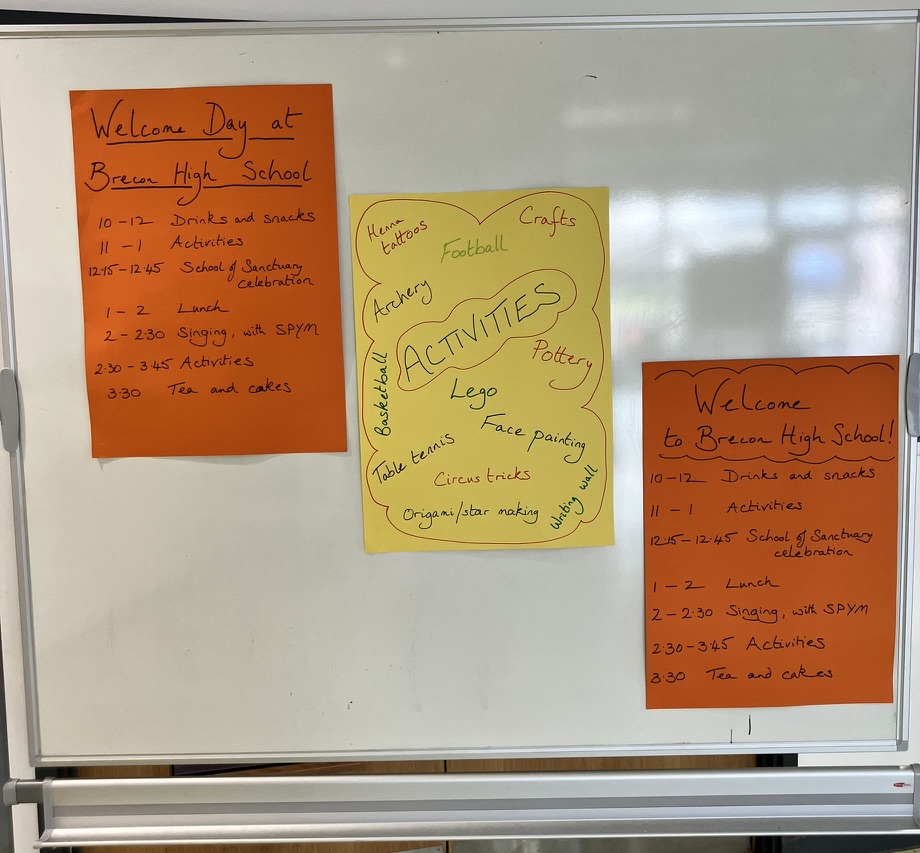 Welcome Day at
Brecon High School
10 - 12 Drinks and snacks
11 - 1 Activities
12.15 - 12.45 School of Sanctuary
celebration
1 - 2 Lunch
2 - 2.30 Singing, with SPYM
2.30 - 3.45 Activities
3.30 Tea and cakes
Henna
tattoos
Crafts
Football
Archery
ACTIVITIES
Pottery
Basketball
Lego
Face painting
Table tennis
Circus tricks
Origami/star making
Writing wall
Welcome
to Brecon High School!
10 - 12 Drinks and snacks
11 - 1 Activities
12.15 - 12.45 School of Sanctuary
celebration
1 - 2 Lunch
2 - 2.30 Singing, with SPYM
2.30 - 3.45 Activities
3.30 Tea and cakes